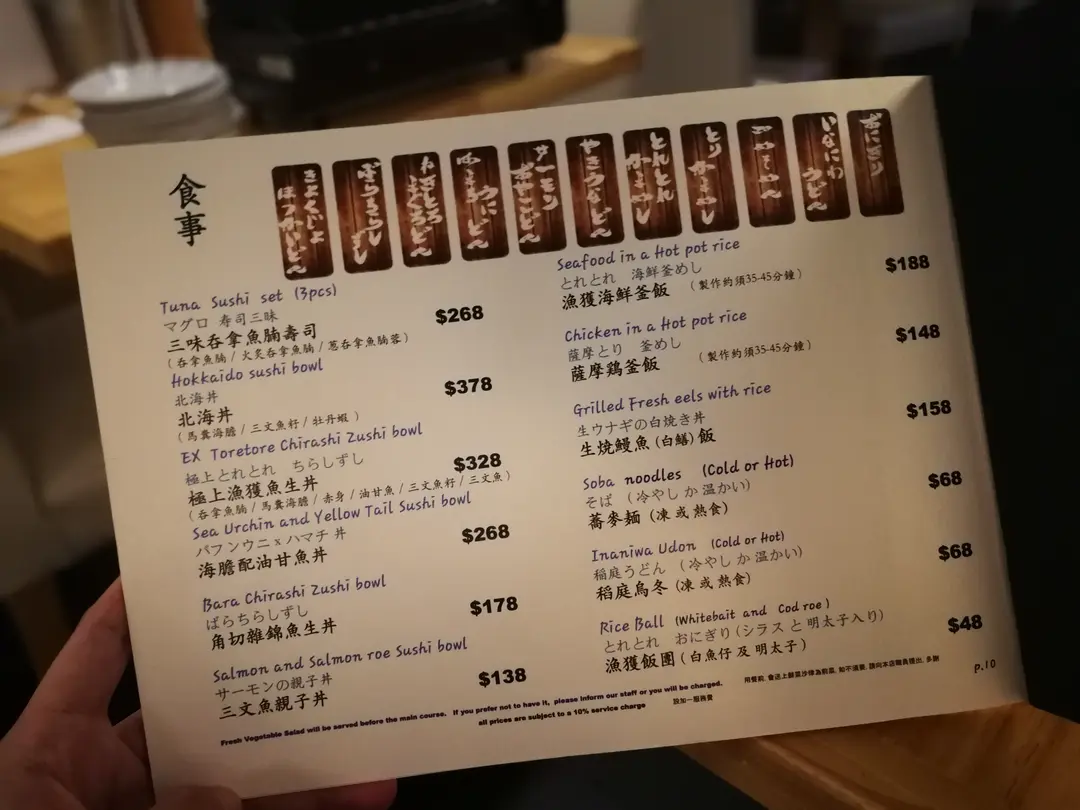 食事
きよくじょ
ほっかいどん
ばらちらし
ずし
ねぎとろ
まぐろどん
うにどん
サーモン
おやこどん
やきうなどん
とれとれ
かまめし
とり
かまめし
いなにわ
うどん
おにぎり
Tuna Sushi set (3pcs)
マグロ 寿司三昧
三味吞拿魚腩壽司
$268
( 吞拿魚腩 / 火炙吞拿魚腩 / 葱吞拿魚腩蓉 )
Hokkaido sushi bowl
北海丼
北海丼
$378
( 馬糞海膽 / 三文魚籽 / 牡丹蝦 )
EX Toretore Chirashi Zushi bowl
極上とれとれ ちらしずし
極上漁獲魚生丼
$328
( 吞拿魚腩 / 馬糞海膽 / 赤身 / 油甘魚 / 三文魚籽 / 三文魚 )
Sea Urchin and Yellow Tail Sushi bowl
バフンウニ x ハマチ 丼
海膽配油甘魚丼
$268
Bara Chirashi Zushi bowl
ばらちらしずし
角切雜錦魚生丼
$178
Salmon and Salmon roe Sushi bowl
サーモンの親子丼
三文魚親子丼
$138
Seafood in a Hot pot rice
とれとれ 海鮮釜めし
漁獲海鮮釜飯 (製作約須35-45分鐘)
$188
Chicken in a Hot pot rice
薩摩とり 釜めし
薩摩鶏釜飯 (製作約須35-45分鐘)
$148
Grilled Fresh eels with rice
生ウナギの白焼き丼
生燒鰻魚 (白鱔) 飯
$158
Soba noodles (Cold or Hot)
そば (冷やし か 温かい)
蕎麥麵 (凍 或 熱食)
$68
Inaniwa Udon (Cold or Hot)
稲庭うどん (冷やし か 温かい)
稻庭烏冬 (凍 或 熱食)
$68
Rice Ball (Whitebait and Cod roe)
とれとれ おにぎり (シラス と 明太子入り)
漁獲飯團 ( 白魚仔 及 明太子 )
$48
Fresh Vegetable Salad will be served before the main course. If you prefer not to have it, please inform our staff or you will be charged.
用餐前, 會送上鮮菜沙律為前菜, 如不適意, 請向本店職員提出, 多謝
all prices are subject to a 10% service charge
設加一服務費
p.10